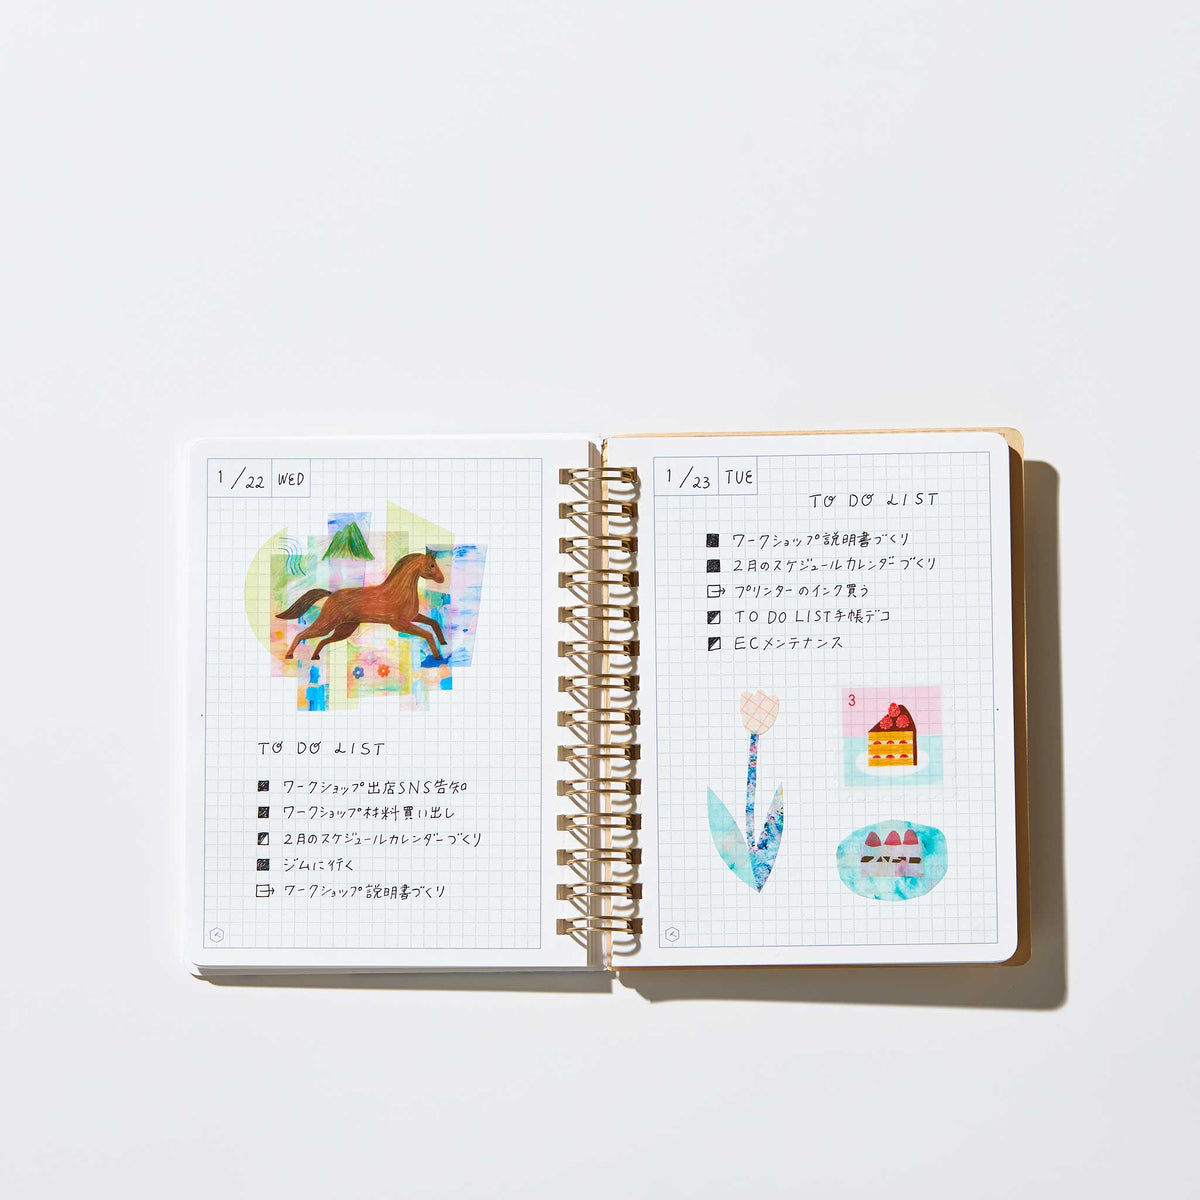 1/22 WED
TO DO LIST
ワークショップ出店SNS告知
ワークショップ材料買い出し
2月のスケジュールカレンダーづくり
ジムに行く
ワークショップ説明書づくり
1/23 TUE
TO DO LIST
ワークショップ説明書づくり
2月のスケジュールカレンダーづくり
プリンターのインク買う
TO DO LIST手帳デコ
ECメンテナンス
3